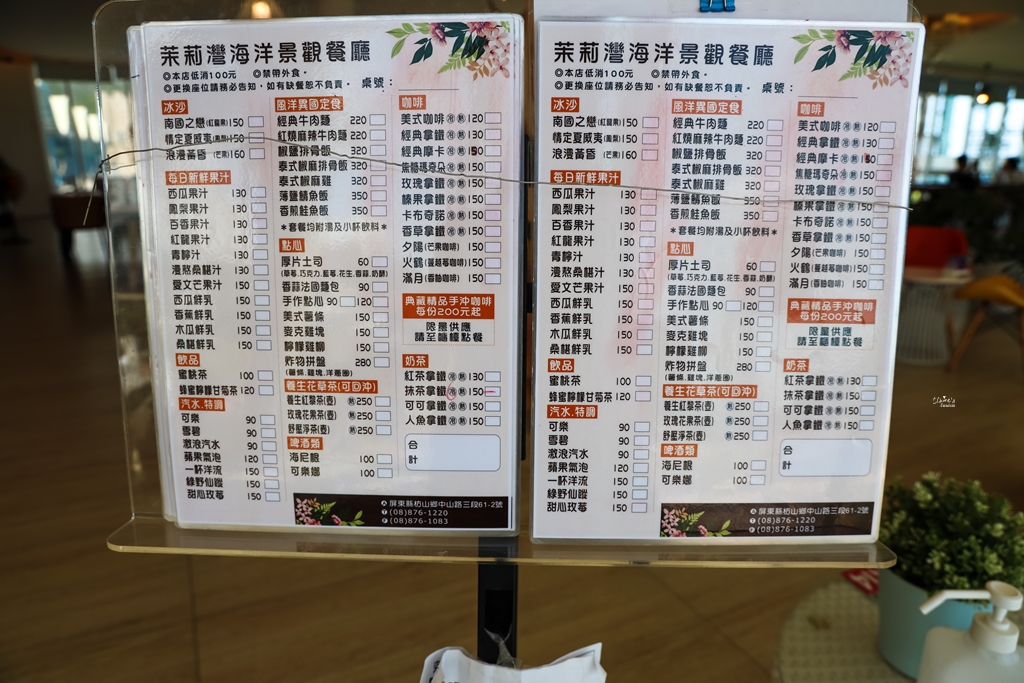 茉莉灣海洋景觀餐廳
◎本店低消100元 ◎禁帶外食。
◎更換座位請務必告知，如有缺餐恕不負責。 桌號：
冰沙
南國之戀(紅龍果) 150
情定夏威夷(鳳梨) 150
浪漫黃昏(芒果) 160
每日新鮮果汁
西瓜果汁 130
鳳梨果汁 130
百香果汁 130
紅龍果汁 130
青檸汁 130
漫熬桑椹汁 130
愛文芒果汁 130
西瓜鮮乳 130
香蕉鮮乳 130
木瓜鮮乳 130
桑椹鮮乳 130
飲品
蜜桃茶 100
蜂蜜檸檬甘菊茶 120
汽水.特調
可樂 90
雪碧 90
激浪汽水 90
蘋果氣泡 120
一杯洋流 150
綠野仙蹤 150
甜心玫莓 150
風洋異國定食
經典牛肉麵 220
紅燒麻辣牛肉麵 220
椒鹽排骨飯 320
泰式椒麻排骨飯 320
泰式椒麻雞 320
薄鹽鯖魚飯 350
香煎鮭魚飯 350
＊套餐均附湯及小杯飲料＊
點心
厚片土司 60
(草莓.巧克力.藍莓.花生.香蒜.奶酥)
香蒜法國麵包 90
手作點心 90 120
美式薯條 150
麥克雞塊 150
檸檬雞柳 150
炸物拼盤 280
(薯條.雞塊.洋蔥圈)
養生花草茶(可回沖)
養生紅棗茶(壺) 熱 250
玫瑰花果茶(壺) 熱 250
舒壓淨茶(壺) 熱 250
啤酒類
海尼根 100
可樂娜 100
咖啡
美式咖啡 冷 熱 120
經典拿鐵 冷 熱 130
經典摩卡 冷 熱 150
焦糖瑪奇朵 冷 熱 150
玫瑰拿鐵 冷 熱 150
榛果拿鐵 冷 熱 150
卡布奇諾 冷 熱 150
香草拿鐵 冷 熱 150
夕陽(芒果咖啡) 150
火鶴(蔓越莓咖啡) 150
滿月(香柚咖啡) 150
典藏精品手沖咖啡
每份200元起
限量供應
請至櫃檯點餐
奶茶
紅茶拿鐵 冷 熱 130
抹茶拿鐵 冷 熱 150
可可拿鐵 冷 熱 150
人魚拿鐵 冷 熱 150
合
計
屏東新枋山鄉中山路三段61-2號
(08)876-1220
(08)876-1083
茉莉灣海洋景觀餐廳
◎本店低消100元 ◎禁帶外食。
◎更換座位請務必告知，如有缺餐恕不負責。 桌號：
冰沙
南國之戀(紅龍果) 150
情定夏威夷(鳳梨) 150
浪漫黃昏(芒果) 160
每日新鮮果汁
西瓜果汁 130
鳳梨果汁 130
百香果汁 130
紅龍果汁 130
青檸汁 130
漫熬桑椹汁 130
愛文芒果汁 130
西瓜鮮乳 130
香蕉鮮乳 130
木瓜鮮乳 130
桑椹鮮乳 130
飲品
蜜桃茶 100
蜂蜜檸檬甘菊茶 120
汽水.特調
可樂 90
雪碧 90
激浪汽水 90
蘋果氣泡 120
一杯洋流 150
綠野仙蹤 150
甜心玫莓 150
風洋異國定食
經典牛肉麵 220
紅燒麻辣牛肉麵 220
椒鹽排骨飯 320
泰式椒麻排骨飯 320
泰式椒麻雞 320
薄鹽鯖魚飯 350
香煎鮭魚飯 350
＊套餐均附湯及小杯飲料＊
點心
厚片土司 60
(草莓.巧克力.藍莓.花生.香蒜.奶酥)
香蒜法國麵包 90
手作點心 90 120
美式薯條 150
麥克雞塊 150
檸檬雞柳 150
炸物拼盤 280
(薯條.雞塊.洋蔥圈)
養生花草茶(可回沖)
養生紅棗茶(壺) 熱 250
玫瑰花果茶(壺) 熱 250
舒壓淨茶(壺) 熱 250
啤酒類
海尼根 100
可樂娜 100
咖啡
美式咖啡 冷 熱 120
經典拿鐵 冷 熱 130
經典摩卡 冷 熱 150
焦糖瑪奇朵 冷 熱 150
玫瑰拿鐵 冷 熱 150
榛果拿鐵 冷 熱 150
卡布奇諾 冷 熱 150
香草拿鐵 冷 熱 150
夕陽(芒果咖啡) 150
火鶴(蔓越莓咖啡) 150
滿月(香柚咖啡) 150
典藏精品手沖咖啡
每份200元起
限量供應
請至櫃檯點餐
奶茶
紅茶拿鐵 冷 熱 130
抹茶拿鐵 冷 熱 150
可可拿鐵 冷 熱 150
人魚拿鐵 冷 熱 150
合
計
屏東新枋山鄉中山路三段61-2號
(08)876-1220
(08)876-1083